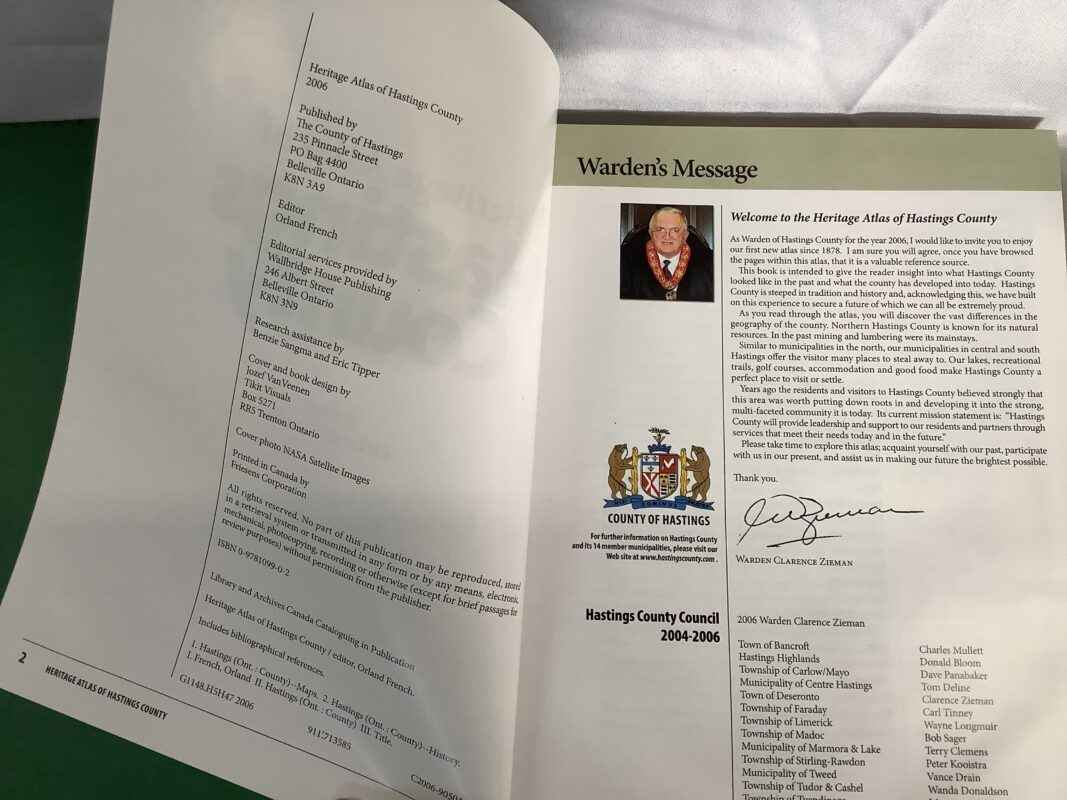 Heritage Atlas of Hastings County
2006
Published by
The County of Hastings
235 Pinnacle Street
PO Bag 4400
Belleville Ontario
K8N 3A9
Editor
Orland French
Editorial services provided by
Wallbridge House Publishing
246 Albert Street
Belleville Ontario
K8N 3N9
Research assistance by
Benzie Sangma and Eric Tipper
Cover and book design by
Jozef VanVeenen
Tikit Visuals
Box 5271
RR5 Trenton Ontario
Cover photo NASA Satellite Images
Printed in Canada by
Friesens Corporation
All rights reserved. No part of this publication may be reproduced, stored
in a retrieval system or transmitted in any form or by any means, electronic,
mechanical, photocopying, recording or otherwise (except for brief passages for
review purposes) without permission from the publisher.
ISBN 0-9781099-0-2
Library and Archives Canada Cataloguing in Publication
Heritage Atlas of Hastings County / editor, Orland French.
Includes bibliographical references.
1. Hastings (Ont. : County)--Maps. 2. Hastings (Ont. : County)--History.
I. French, Orland II. Hastings (Ont. : County) III. Title.
G1148.H5H47 2006
911'.713585
2
HERITAGE ATLAS OF HASTINGS COUNTY
Warden's Message
Welcome to the Heritage Atlas of Hastings County
As Warden of Hastings County for the year 2006, I would like to invite you to enjoy
our first new atlas since 1878. I am sure you will agree, once you have browsed
the pages within this atlas, that it is a valuable reference source.
This book is intended to give the reader insight into what Hastings County
looked like in the past and what the county has developed into today. Hastings
County is steeped in tradition and history and, acknowledging this, we have built
on this experience to secure a future of which we can all be extremely proud.
As you read through the atlas, you will discover the vast differences in the
geography of the county. Northern Hastings County is known for its natural
resources. In the past mining and lumbering were its mainstays.
Similar to municipalities in the north, our municipalities in central and south
Hastings offer the visitor many places to steal away to. Our lakes, recreational
trails, golf courses, accommodation and good food make Hastings County a
perfect place to visit or settle.
Years ago the residents and visitors to Hastings County believed strongly that
this area was worth putting down roots in and developing it into the strong,
multi-faceted community it is today. Its current mission statement is: "Hastings
County will provide leadership and support to our residents and partners through
services that meet their needs today and in the future."
Please take time to explore this atlas; acquaint yourself with our past, participate
with us in our present, and assist us in making our future the brightest possible.
Thank you.
WARDEN CLARENCE ZIEMAN
COUNTY OF HASTINGS
For further information on Hastings County
and its 14 member municipalities, please visit our
Web site at www.hastingscounty.com .
Hastings County Council
2004-2006
2006 Warden Clarence Zieman
Town of Bancroft Charles Mullett
Hastings Highlands Donald Bloom
Township of Carlow/Mayo Dave Panabaker
Municipality of Centre Hastings Tom Deline
Town of Deseronto Clarence Zieman
Township of Faraday Carl Tinney
Township of Limerick Wayne Longmuir
Township of Madoc Bob Sager
Municipality of Marmora & Lake Terry Clemens
Township of Stirling-Rawdon Peter Kooistra
Municipality of Tweed Vance Drain
Township of Tudor & Cashel Wanda Donaldson